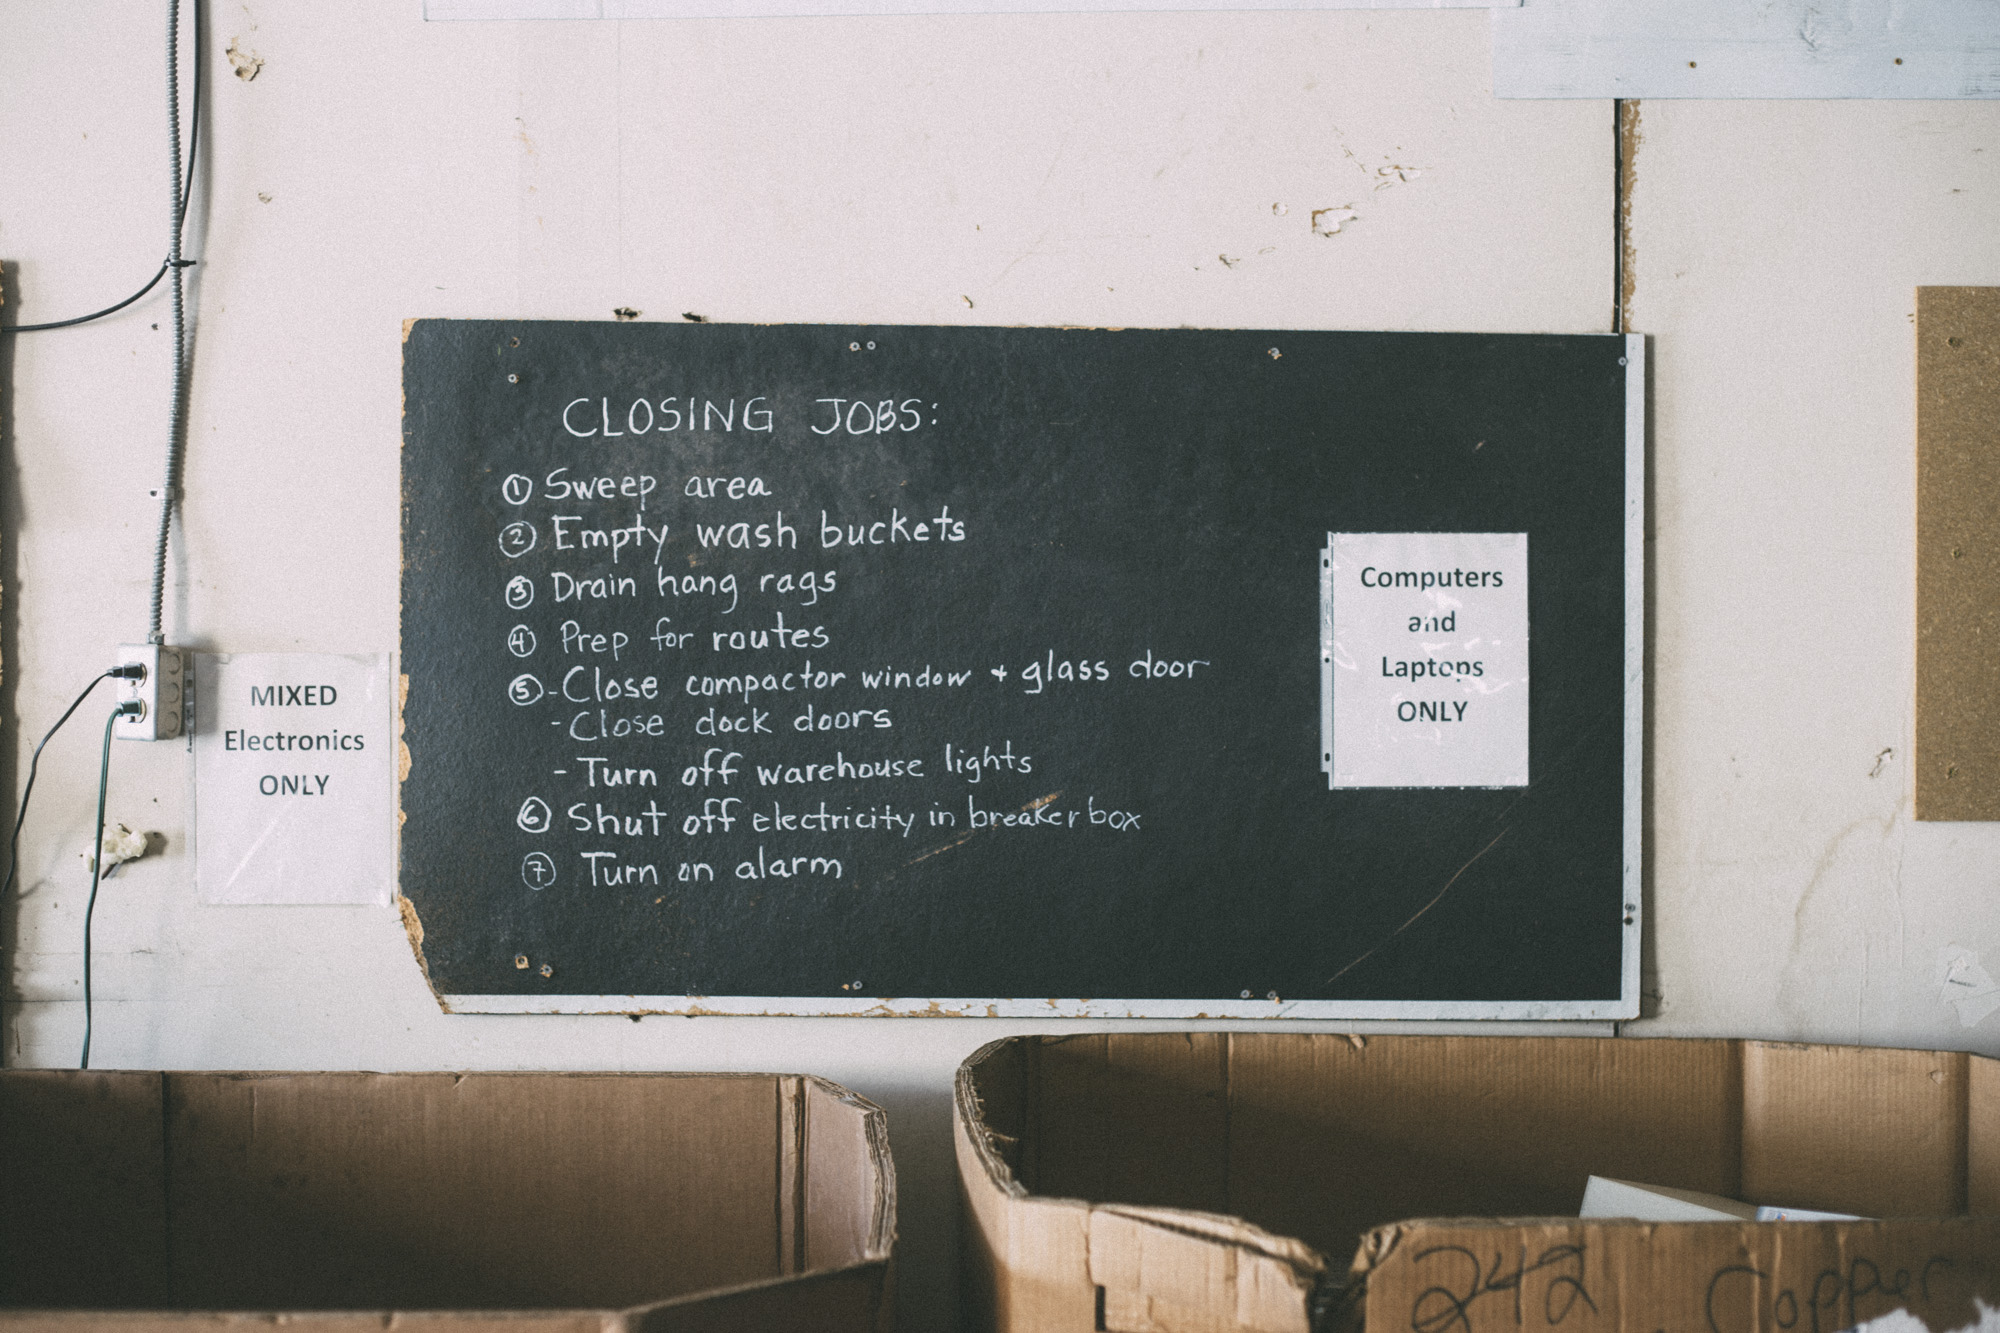 CLOSING JOBS:
① Sweep area
② Empty wash buckets
③ Drain hang rags
④ Prep for routes
⑤ - Close compactor window + glass door
- Close dock doors
- Turn off warehouse lights
⑥ Shut off electricity in breaker box
⑦ Turn on alarm
MIXED
Electronics
ONLY
Computers
and
Laptops
ONLY
242 Copper